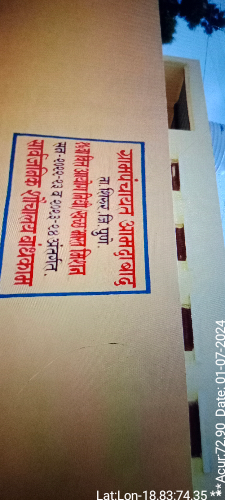 ग्रामपंचायत आमदाबाद
ता. शिरूर, जि. पुणे.
१५ वा वित्त आयोग निधी स्वच्छ भारत मिशन
सन-२०२२-२३ व २०२३-२४ अंतर्गत.
सार्वजनिक शौचालय बांधकाम
Lat:Lon-18.83:74.35
**Acur:72.90 Date: 01-07-2024